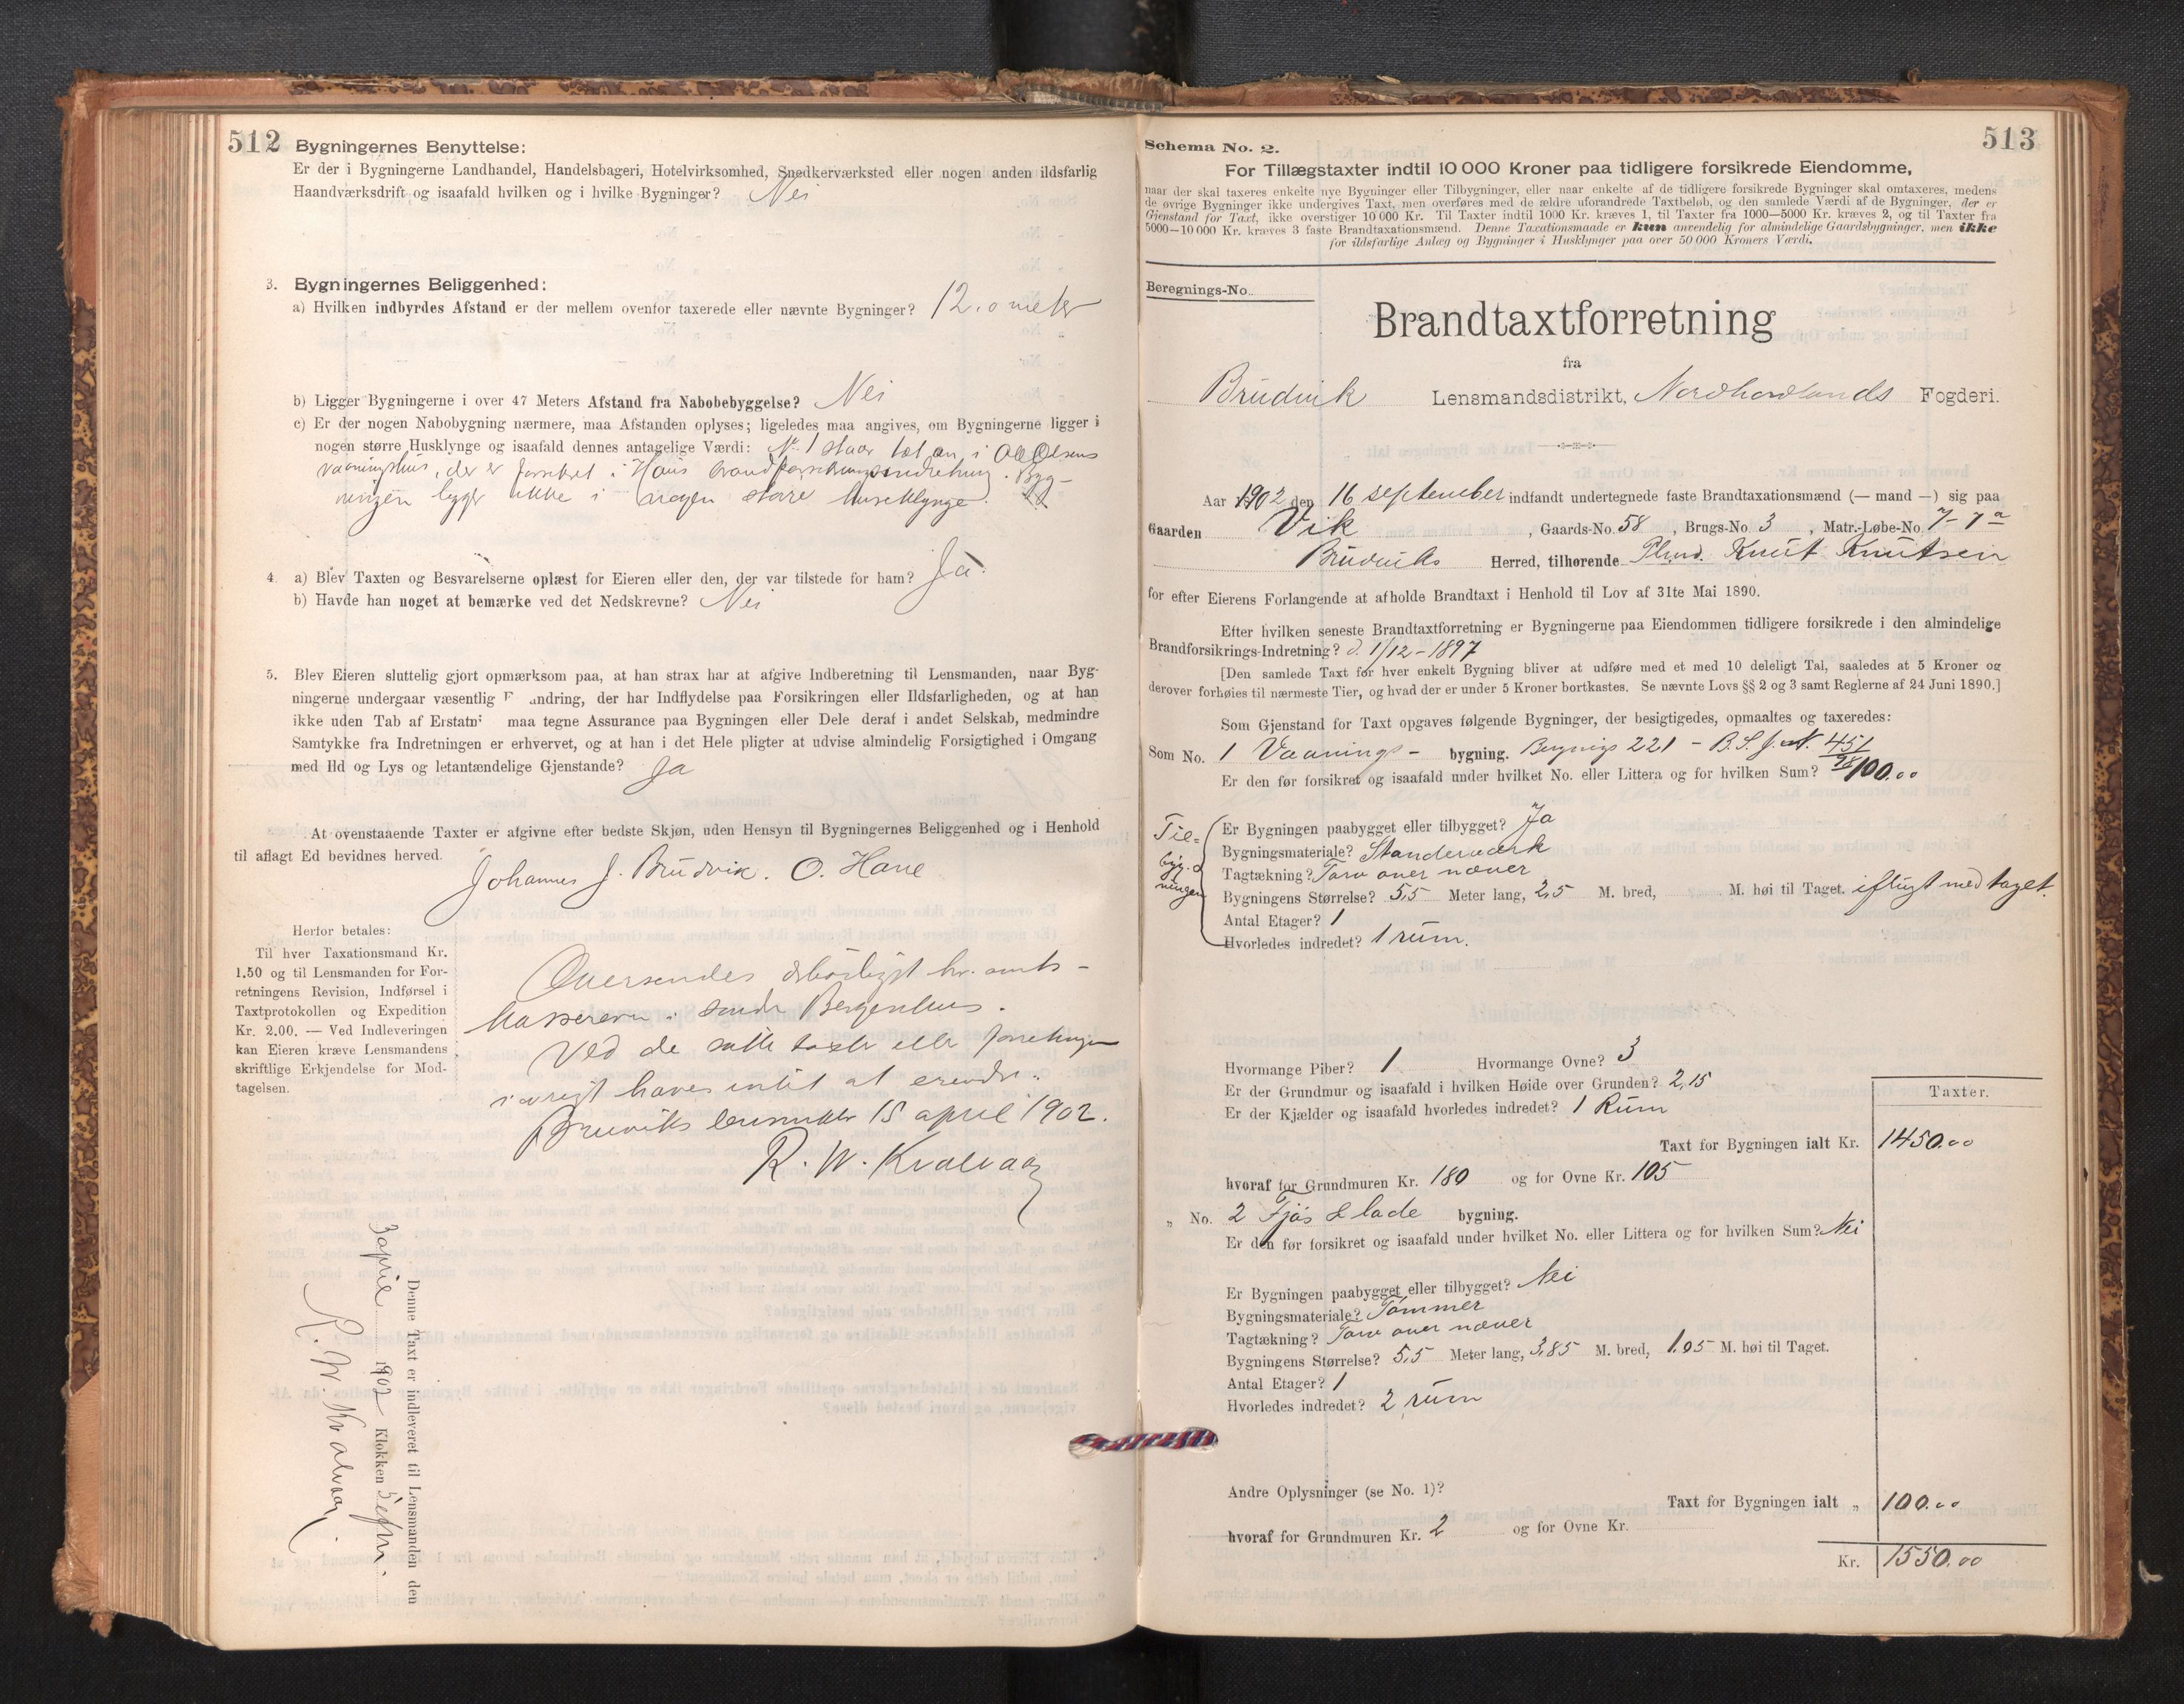 512
Bygningernes Benyttelse:
Er der i Bygningerne Landhandel, Handelsbageri, Hotelvirksomhed, Snedkerværksted eller nogen anden ildsfarlig
Haandværksdrift og isaafald hvilken og i hvilke Bygninger? Nei
3. Bygningernes Beliggenhed:
a) Hvilken indbyrdes Afstand er der mellem ovenfor taxerede eller nævnte Bygninger? 12.0 meter
b) Ligger Bygningerne i over 47 Meters Afstand fra Nabobebyggelse? Nei
c) Er der nogen Nabobygning nærmere, maa Afstanden oplyses; ligeledes maa angives, om Bygningerne ligger i
nogen større Husklynge og isaafald dennes antagelige Værdi: No 1 staar tæt an i Ole Olsens
vaaningshus, der er forsikret i Haus brandforsikringsindretning. Byg-
ningen ligger ikke i nogen større huseklynge.
4. a) Blev Taxten og Besvarelserne oplæst for Eieren eller den, der var tilstede for ham? Ja.
b) Havde han noget at bemærke ved det Nedskrevne? Nei
5. Blev Eieren sluttelig gjort opmærksom paa, at han strax har at afgive Indberetning til Lensmanden, naar Byg-
ningerne undergaar væsentlig F andring, der har Indflydelse paa Forsikringen eller Ildsfarligheden, og at han
ikke uden Tab af Erstatn maa tegne Assurance paa Bygningen eller Dele deraf i andet Selskab, medmindre
Samtykke fra Indretningen er erhvervet, og at han i det Hele pligter at udvise almindelig Forsigtighed i Omgang
med Ild og Lys og letantændelige Gjenstande? Ja
At ovenstaaende Taxter er afgivne efter bedste Skjøn, uden Hensyn til Bygningernes Beliggenhed og i Henhold
til aflagt Ed bevidnes herved.
Johannes J. Brudvik. O. Hane
Herfor betales:
Til hver Taxationsmand Kr.
1.50 og til Lensmanden for For-
retningens Revision, Indførsel i
Taxtprotokollen og Expedition
Kr. 2.00. — Ved Indleveringen
kan Eieren kræve Lensmandens
skriftlige Erkjendelse for Mod-
tagelsen.
Oversendes ærbødigst hr. amts-
kasserern i søndre Bergenhus.
Ved de satte taxter eller forretningen
iøvrigt haves intet at erindre.
Bruviks lensmd. 15 april 1902.
R. W. Kvalvaag
Denne Taxt er indleveret til Lensmanden den
3 april 1902 Klokken 5 efm.
R. W. Kvalvaag.
513
Schema No. 2.
For Tillægstaxter indtil 10 000 Kroner paa tidligere forsikrede Eiendomme,
naar der skal taxeres enkelte nye Bygninger eller Tilbygninger, eller naar enkelte af de tidligere forsikrede Bygninger skal omtaxeres, medens
de øvrige Bygninger ikke undergives Taxt, men overføres med de ældre uforandrede Taxtbeløb, og den samlede Værdi af de Bygninger, der er
Gjenstand for Taxt, ikke overstiger 10 000 Kr. Til Taxter indtil 1000 Kr. kræves 1, til Taxter fra 1000—5000 Kr. kræves 2, og til Taxter fra
5000—10 000 Kr. kræves 3 faste Brandtaxationsmænd. Denne Taxationsmaade er kun anvendelig for almindelige Gaardsbygninger, men ikke
for ildsfarlige Anlæg og Bygninger i Husklynger paa over 50 000 Kroners Værdi.
Beregnings-No.
Brandtaxtforretning
fra
Brudvik Lensmandsdistrikt, Nordhordlands Fogderi.
Aar 1902 den 16 september indfandt undertegnede faste Brandtaxationsmænd (— mand —) sig paa
Gaarden Vik , Gaards-No. 58 , Brugs-No 3 , Matr.-Løbe-No. 7-7a
Brudviks Herred, tilhørende Plmd. Knut Knutsen
for efter Eierens Forlangende at afholde Brandtaxt i Henhold til Lov af 31te Mai 1890.
Efter hvilken seneste Brandtaxtforretning er Bygningerne paa Eiendommen tidligere forsikrede i den almindelige
Brandforsikrings-Indretning? d. 1/12-1897
[Den samlede Taxt for hver enkelt Bygning bliver at udføre med et med 10 deleligt Tal, saaledes at 5 Kroner og
derover forhøies til nærmeste Tier, og hvad der er under 5 Kroner bortkastes. Se nævnte Lovs §§ 2 og 3 samt Reglerne af 24 Juni 1890.]
Som Gjenstand for Taxt opgaves følgende Bygninger, der besigtigedes, opmaaltes og taxeredes:
Som No. 1 Vaanings- bygning. Beregnings 221 - B.S.J. N. 451/98
Er den før forsikret og isaafald under hvilket No. eller Littera og for hvilken Sum? 100.00
Til-
byg-
ningen
Er Bygningen paabygget eller tilbygget? Ja
Bygningsmateriale? Standerværk
Tagtækning? Torv over næver
Bygningens Størrelse? 5,5 Meter lang, 2,5 M. bred, M. høi til Taget. iflugt med taget.
Antal Etager? 1
Hvorledes indredet? 1 rum.
Hvormange Piber? 1 Hvormange Ovne? 3
Er der Grundmur og isaafald i hvilken Høide over Grunden? 2,15
Er der Kjælder og isaafald hvorledes indredet? 1 Rum
Taxter.
Taxt for Bygningen ialt Kr. 1450.00
hvoraf for Grundmuren Kr. 180 og for Ovne Kr. 105
„ No. 2 Fjøs & lade bygning.
Er den før forsikret og isaafald under hvilket No. eller Littera og for hvilken Sum? Nei
Er Bygningen paabygget eller tilbygget? Nei
Bygningsmateriale? Tømmer
Tagtækning? Torv over næver
Bygningens Størrelse? 5,5 Meter lang, 3,85 M. bred, 1.95 M. høi til Taget.
Antal Etager? 1
Hvorledes indredet? 2 rum
Andre Oplysninger (se No. 1)?
Taxt for Bygningen ialt „ 100.00
hvoraf for Grundmuren Kr. 2 og for Ovne Kr.
Kr. 1550.00